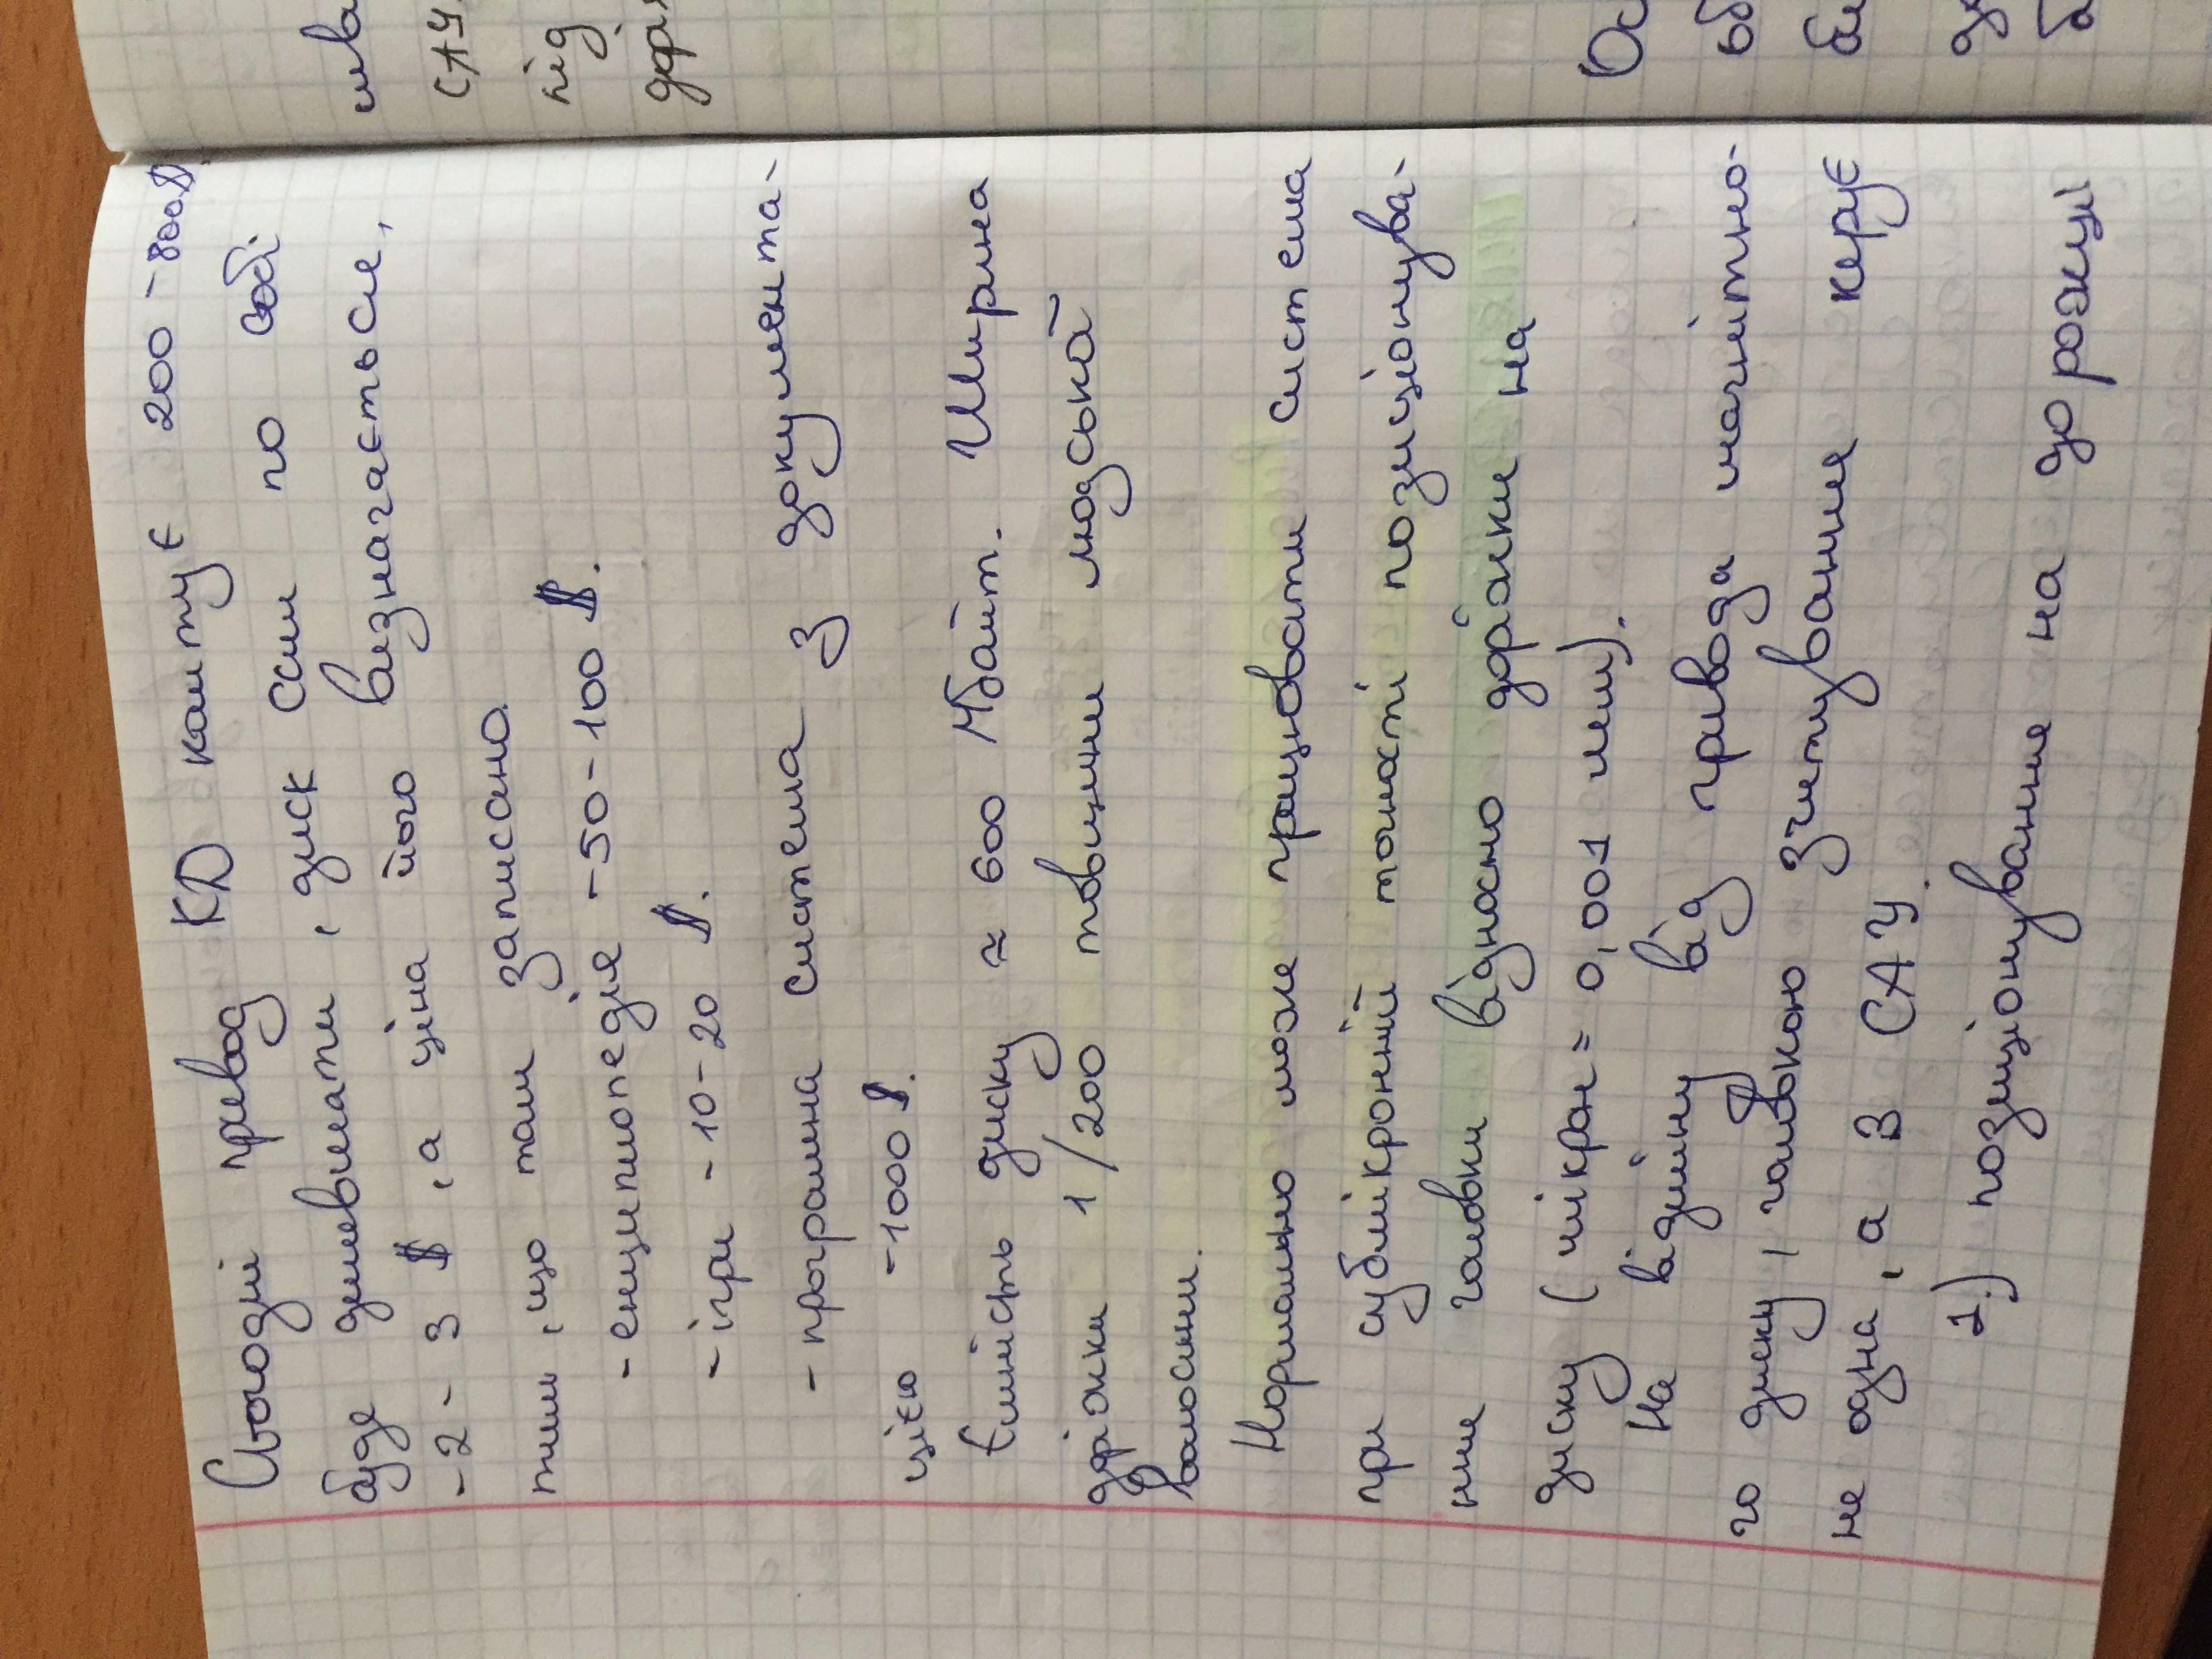 Сьогодні привод КД коштує 200-800$,
буде дешевшати, диск сам по собі
-2-3 $, а ціна його визначається,
тим, що там записано.
- енциклопедія -50-100 $.
- ігри -10-20 $.
- програмна система з документа-
цією -1000 $.
Ємність диску ≈ 600 Мбайт. Ширина
доріжки 1/200 товщини людської
волосини.
Нормально може працювати система
при субмікронній точності позиціонува-
ння головки відносно доріжки на
диску (мікрон = 0,001 мм).
На відміну від привода магнітно-
го диску, головкою зчитування керує
не одна, а 3 САУ.
1.) позиціонування на дорожці
шва
САУ.
під
дорі
Ос
об
до